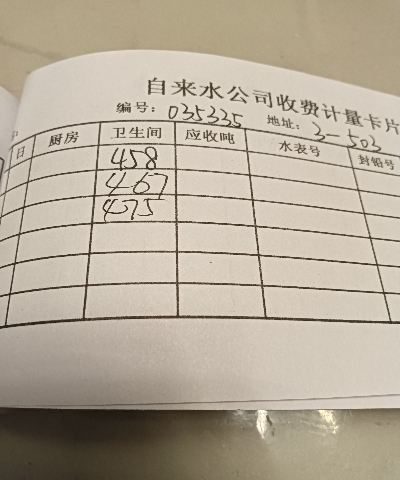 自来水公司收费计量卡片
编号：035335 地址：3-503
日 厨房 卫生间 应收吨 水表号 封铅号
458
467
475